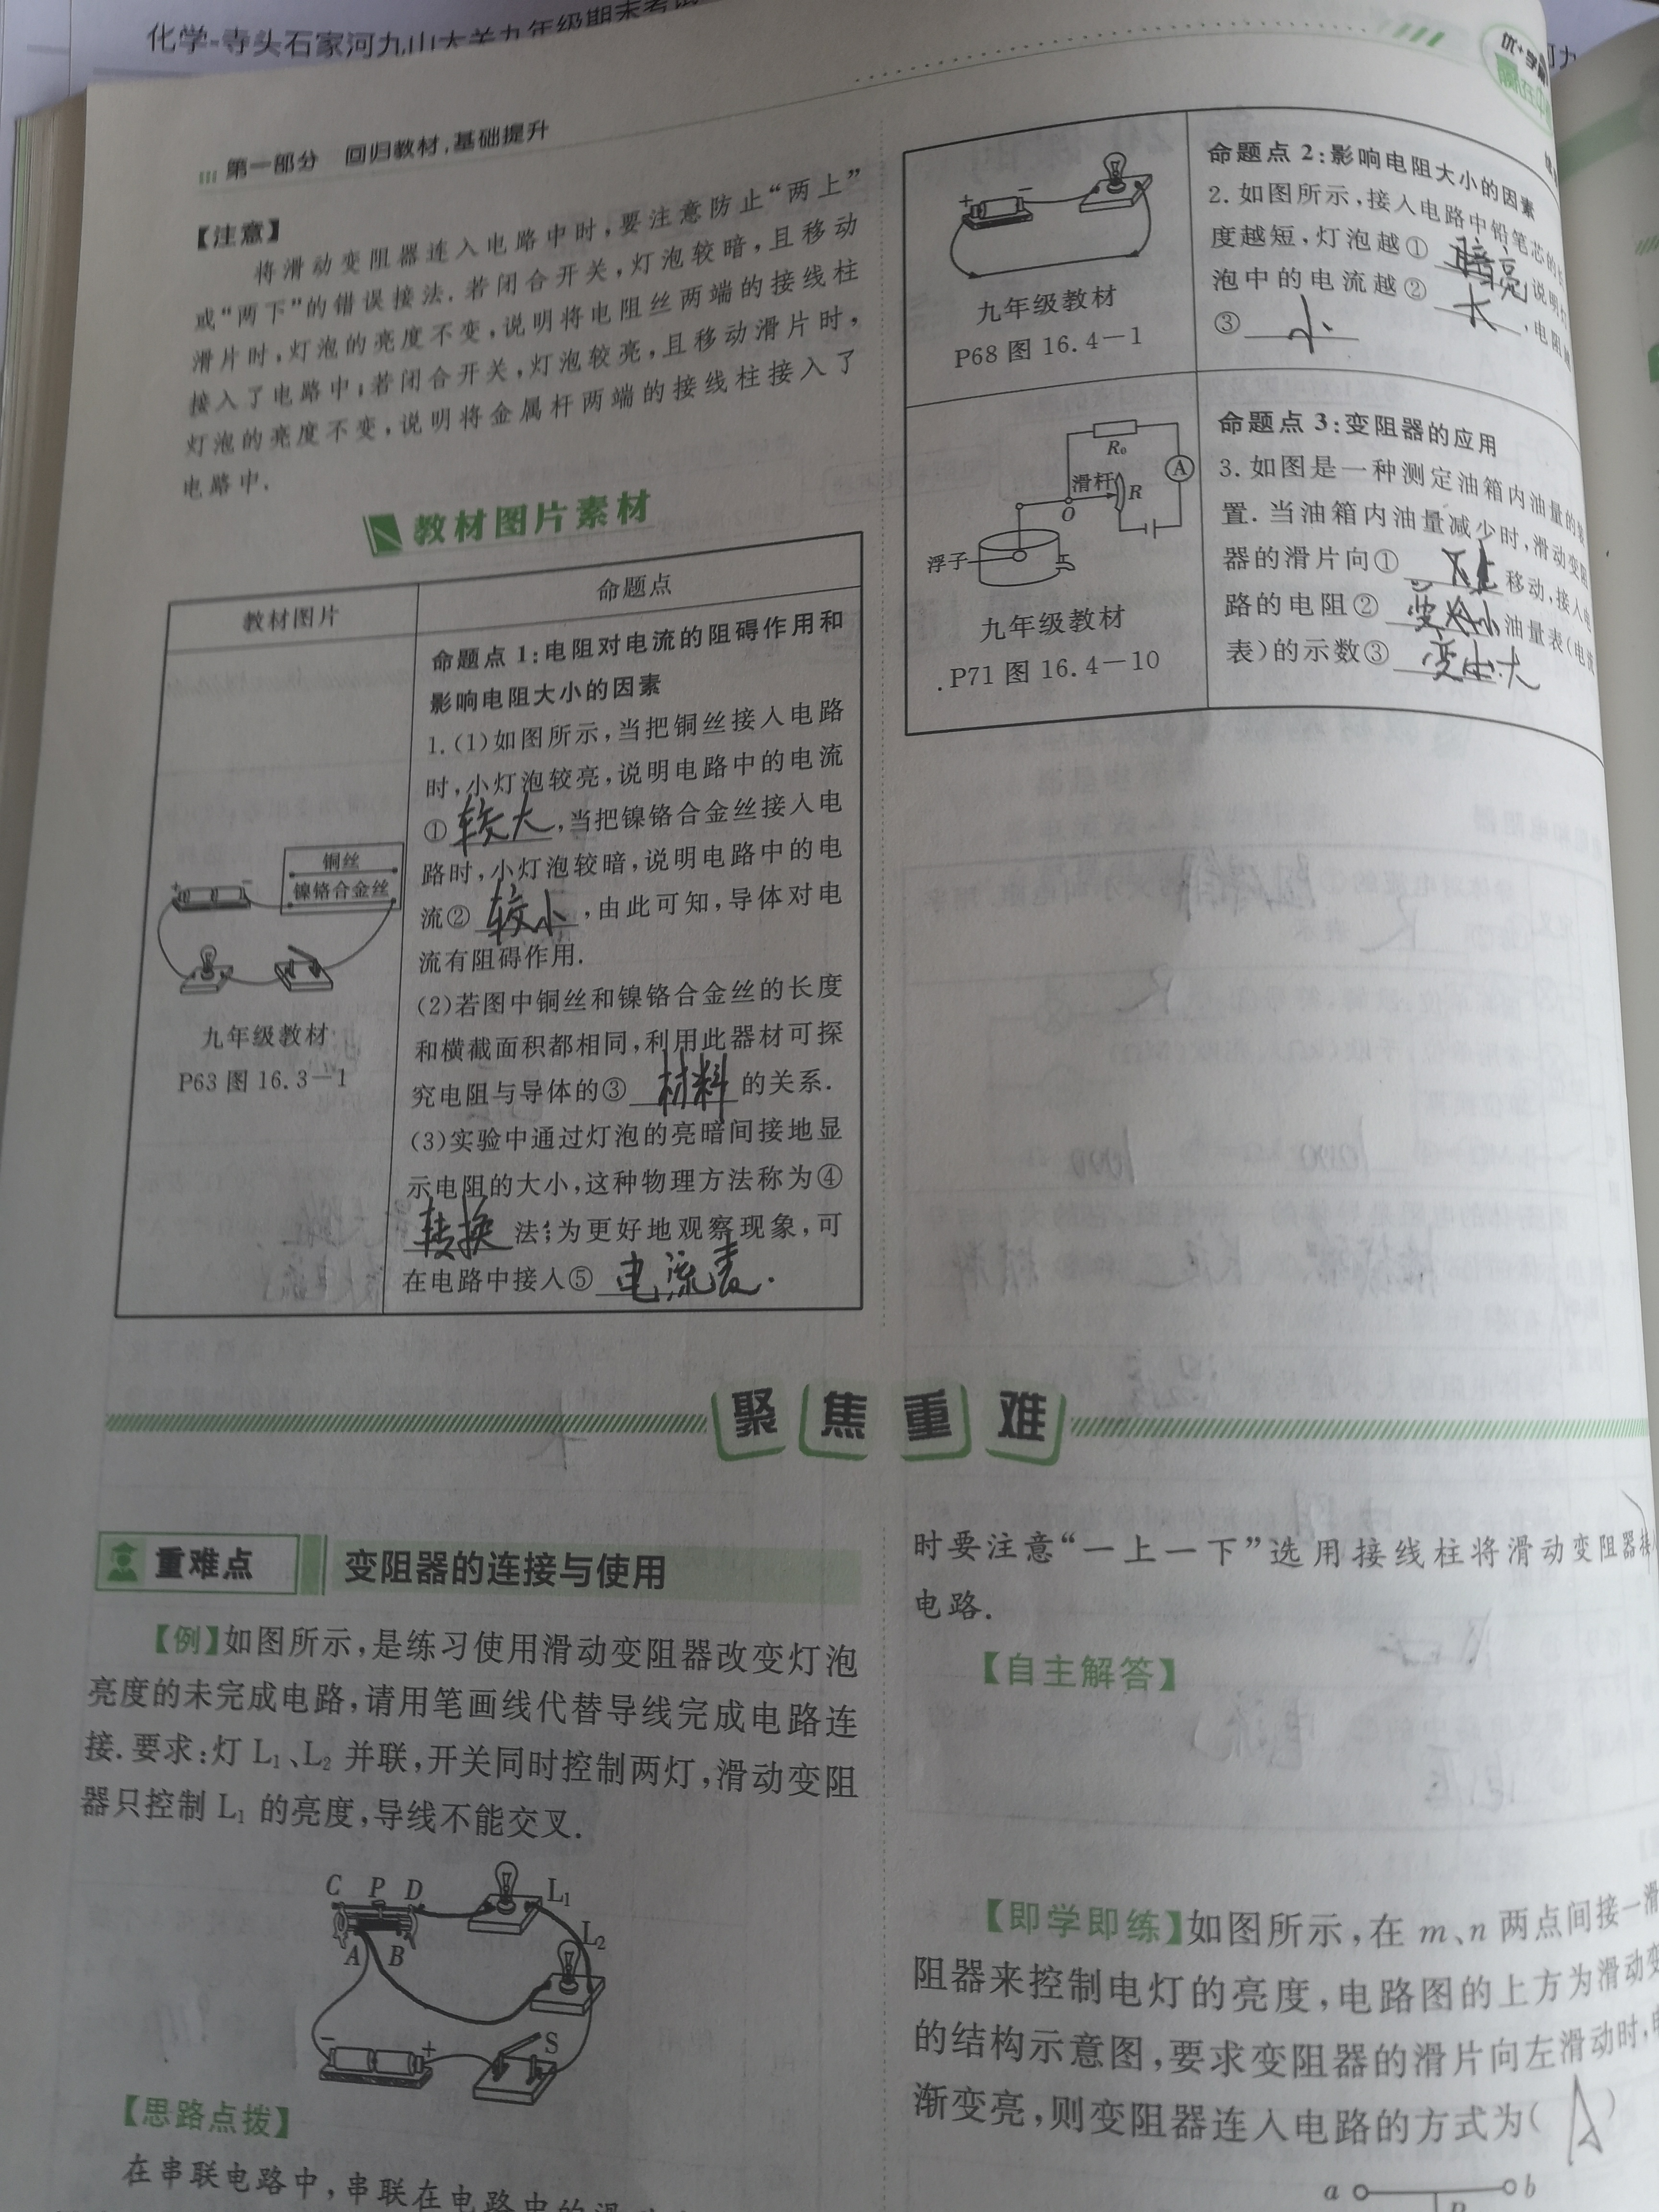 化学-寺头石家河九山大关九年级期末考试
第一部分 回归教材,基础提升
【注意】
将滑动变阻器连入电路中时,要注意防止“两上”
或“两下”的错误接法.若闭合开关,灯泡较暗,且移动
滑片时,灯泡的亮度不变,说明将电阻丝两端的接线柱
接入了电路中;若闭合开关,灯泡较亮,且移动滑片时,
灯泡的亮度不变,说明将金属杆两端的接线柱接入了
电路中.
教材图片素材
教材图片
命题点
铜丝
镍铬合金丝
+ −
九年级教材
P63 图 16.3-1
命题点 1:电阻对电流的阻碍作用和
影响电阻大小的因素
1.(1)如图所示,当把铜丝接入电路
时,小灯泡较亮,说明电路中的电流
①较大,当把镍铬合金丝接入电
路时,小灯泡较暗,说明电路中的电
流②较小,由此可知,导体对电
流有阻碍作用.
(2)若图中铜丝和镍铬合金丝的长度
和横截面积都相同,利用此器材可探
究电阻与导体的③材料的关系.
(3)实验中通过灯泡的亮暗间接地显
示电阻的大小,这种物理方法称为④
转换法;为更好地观察现象,可
在电路中接入⑤电流表.
+ −
九年级教材
P68 图 16.4-1
命题点 2:影响电阻大小的因素
2.如图所示,接入电路中铅笔芯的长
度越短,灯泡越①亮说明
泡中的电流越②大,电阻
③小
R₀
A
滑杆
R
O
浮子
九年级教材
.P71 图 16.4-10
命题点 3:变阻器的应用
3.如图是一种测定油箱内油量的装
置.当油箱内油量减少时,滑动变阻
器的滑片向①上移动,接入电
路的电阻②变小油量表(电流
表)的示数③变大
聚焦重难
重难点 变阻器的连接与使用
【例】如图所示,是练习使用滑动变阻器改变灯泡
亮度的未完成电路,请用笔画线代替导线完成电路连
接.要求:灯 L₁、L₂ 并联,开关同时控制两灯,滑动变阻
器只控制 L₁ 的亮度,导线不能交叉.
C P D
L₁
L₂
A B
− +
S
【思路点拨】
在串联电路中,串联在电路中的滑动
时要注意“一上一下”选用接线柱将滑动变阻器接
电路.
【自主解答】
【即学即练】如图所示,在 m、n 两点间接一滑
阻器来控制电灯的亮度,电路图的上方为滑动变
的结构示意图,要求变阻器的滑片向左滑动时,
渐变亮,则变阻器连入电路的方式为( A )
a b
P